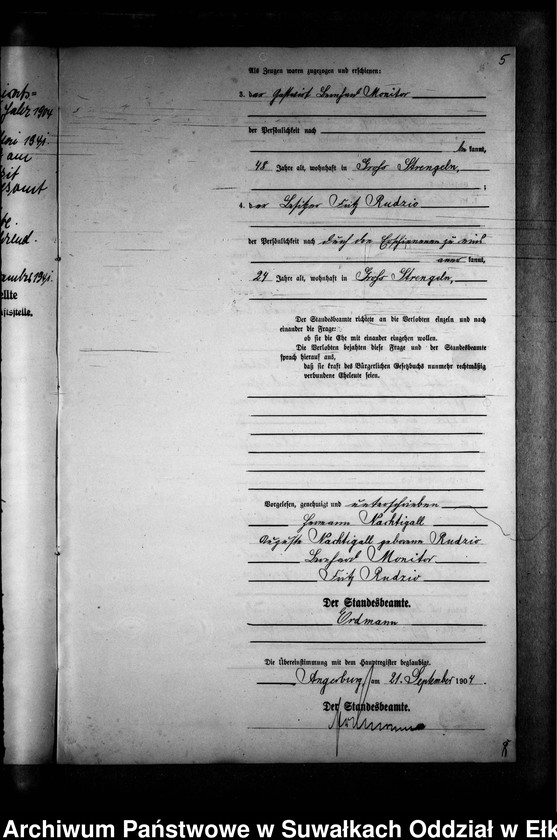 5
Als Zeugen waren zugezogen und erschienen:
3. der Gastwirt Bernhard Monitor
der Persönlichkeit nach
be kannt,
48 Jahre alt, wohnhaft in Groß Strengeln,
;
4. der Besitzer Fritz Rudzio
der Persönlichkeit nach durch den Erschienenen zu eins
aner kannt,
27 Jahre alt, wohnhaft in Groß Strengeln,
Der Standesbeamte richtete an die Verlobten einzeln und nach
einander die Frage:
ob sie die Ehe mit einander eingehen wollen.
Die Verlobten bejahten diese Frage und der Standesbeamte
sprach hierauf aus,
daß sie kraft des Bürgerlichen Gesetzbuchs nunmehr rechtmäßig
verbundene Eheleute seien.
Vorgelesen, genehmigt und unterschrieben
Hermann Nachtigall
Auguste Nachtigall geborene Rudzio
Bernhard Monitor
Fritz Rudzio
Der Standesbeamte.
Erdmann
Die Übereinstimmung mit dem Hauptregister beglaubigt.
Angerburg, am 21. September 1904.
Der Standesbeamte.
Jahr 1904
Archiwum Państwowe w Suwałkach Oddział w Ełk